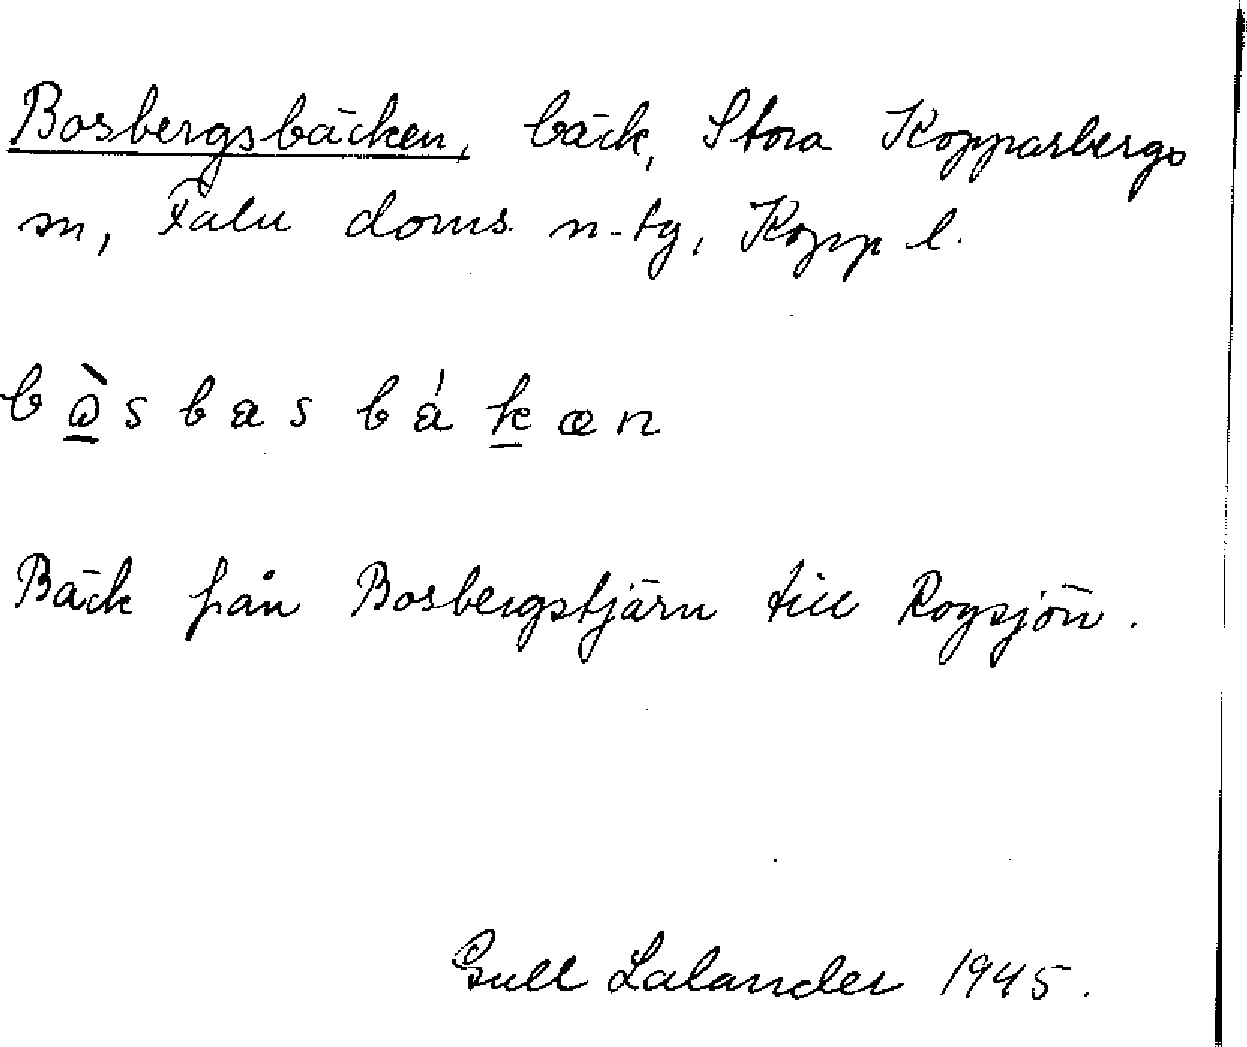 Bosbergsbäcken, bäck, Stora Kopparbergs
sn, Falu doms. n-tg, Kopp l.
Bäck från Bosbergstjärn till Rogsjön.
Gull Lalander 1945.